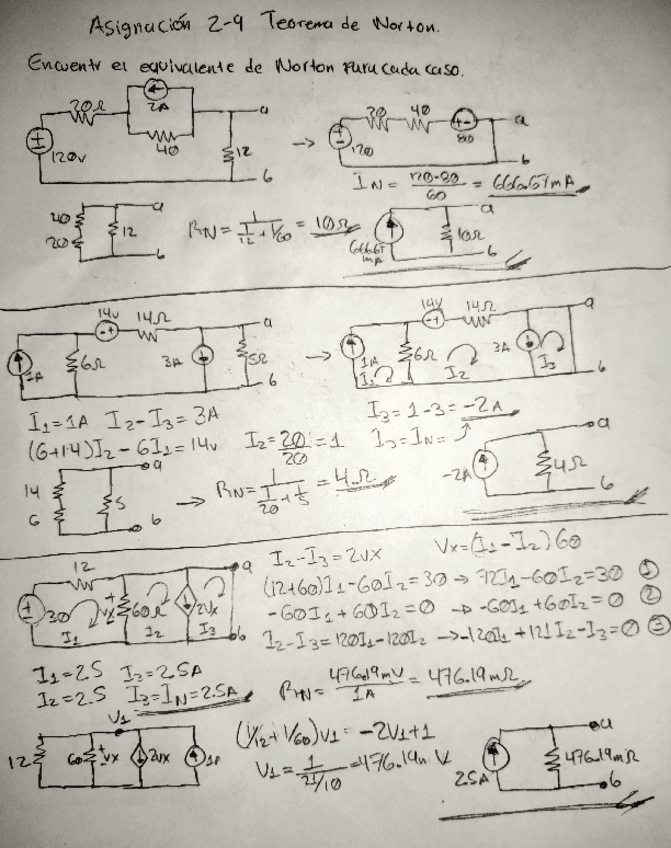 Asignación 2-9 Teorema de Norton.
Encuentr el equivalente de Norton para cada caso.
20Ω 2A 40 120V 12 a b
→ 120 20 40 80 a b
I_N = (120-80)/60 = 666.67mA
40 20 12 a b
R_N = 1/(1/12 + 1/60) = 10Ω
666.67 mA 10Ω a b
1A 6Ω 14V 14Ω 3A 5Ω a b
→ 1A 6Ω 14V 14Ω 3A I1 I2 I3 a b
I1=1A I2-I3=3A
I3=1-3=-2A
(6+14)I2-6I1=14v I2=20/20=1 I3=IN=
14 6 5 a b
→ RN=1/(1/20+1/5)=4Ω
-2A 4Ω a b
12 30 Vx 60Ω 2Vx I1 I2 I3 a b
I2-I3=2Vx Vx=(I1-I2)60
(12+60)I1-60I2=30 → 72I1-60I2=30 ①
-60I1+60I2=0 → -60I1+60I2=0 ②
I2-I3=120I1-120I2 → -120I1+121I2-I3=0 ③
I1=2.5 I3=2.5A
I2=2.5 I3=IN=2.5A
RN=476.19mV/1A=476.19mΩ
V1 12 60 +Vx 2Vx 1A
(1/12+1/60)V1=-2V1+1
V1=1/(21/10)=476.19m V
2.5A 476.19mΩ a b